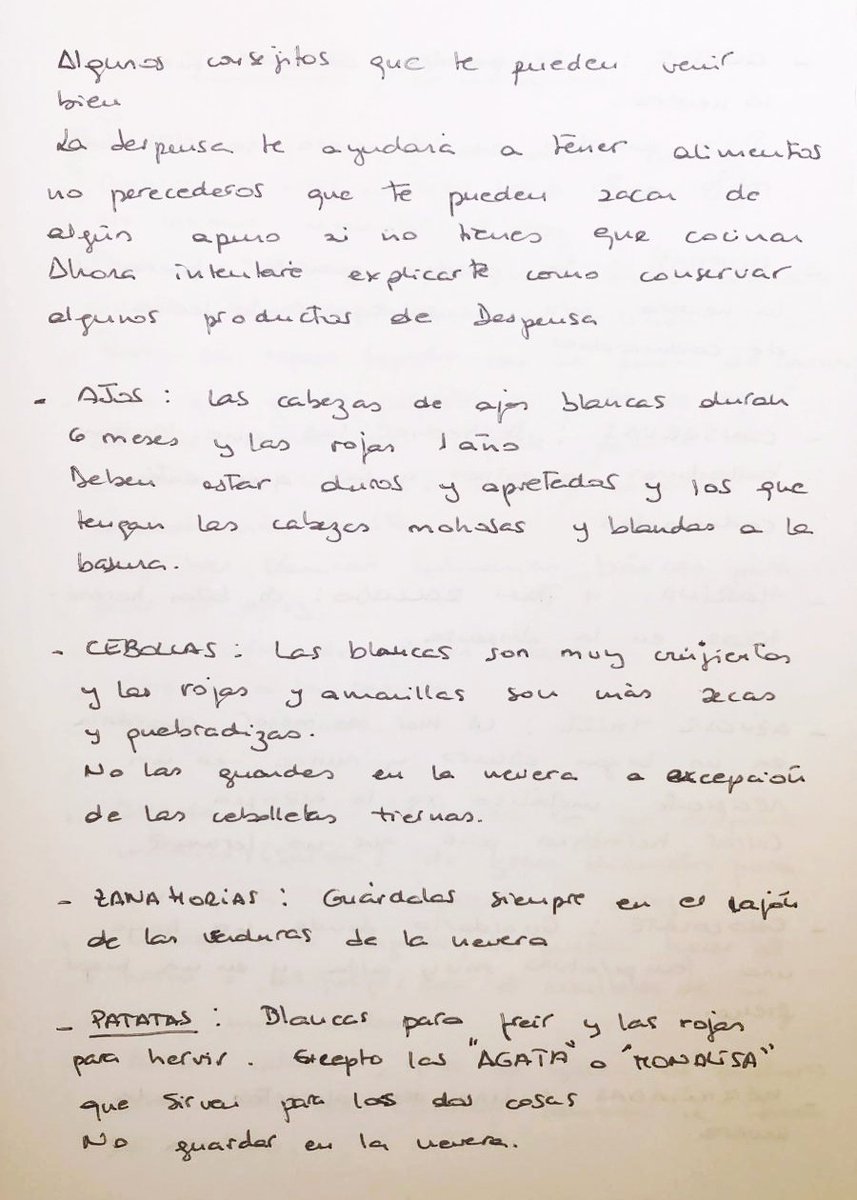 Algunos consejitos que te pueden venir
bien
La despensa te ayudará a tener alimentos
no perecederos que te pueden sacar de
algún apuro si no tienes que cocinar
Ahora intentaré explicarte como conservar
algunos productos de Despensa
- AJOS : Las cabezas de ajos blancas duran
6 meses y las rojas 1 año
Deben estar duros y apretados y los que
tengan las cabezas mohosas y blandas a la
basura.
- CEBOLLAS : Las blancas son muy crujientes
y las rojas y amarillas son más secas
y quebradizas.
No las guardes en la nevera a excepción
de las cebolletas tiernas.
- ZANAHORIAS : Guárdalas siempre en el cajón
de las verduras de la nevera
- PATATAS : Blancas para freir y las rojas
para hervir. Excepto las "AGATA" o "MONALISA"
que sirven para las dos cosas
No guardar en la nevera.